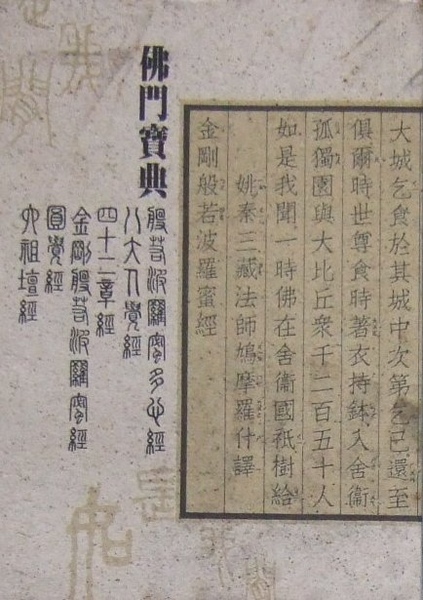 佛門寶典
般若波羅蜜多心經
八大人覺經
四十二章經
金剛般若波羅蜜經
圓覺經
六祖壇經
金剛般若波羅蜜經
姚秦三藏法師鳩摩羅什譯
如是我聞一時佛在舍衞國祇樹給
孤獨園與大比丘眾千二百五十人
俱爾時世尊食時著衣持鉢入舍衞
大城乞食於其城中次第乞已還至